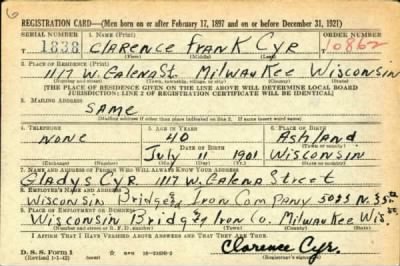 REGISTRATION CARD—(Men born on or after February 17, 1897 and on or before December 31, 1921)
SERIAL NUMBER 1. NAME (Print) ORDER NUMBER
1838 CLARENCE FRANK CYR 10862
(First) (Middle) (Last)
2. PLACE OF RESIDENCE (Print)
1117 W. GALENA ST. MILWAUKEE WISCONSIN
(Number and street) (Town, township, village, or city) (County) (State)
[THE PLACE OF RESIDENCE GIVEN ON THE LINE ABOVE WILL DETERMINE LOCAL BOARD
JURISDICTION; LINE 2 OF REGISTRATION CERTIFICATE WILL BE IDENTICAL]
3. MAILING ADDRESS
SAME
(Mailing address if other than place indicated on line 2. If same insert word same)
4. TELEPHONE 5. AGE IN YEARS 6. PLACE OF BIRTH
NONE 40 Ashland
DATE OF BIRTH (Town or county)
July 11 1901 WISCONSIN
(Exchange) (Number) (Mo.) (Day) (Yr.) (State or country)
7. NAME AND ADDRESS OF PERSON WHO WILL ALWAYS KNOW YOUR ADDRESS
Gladys Cyr 1117 W. Galena Street
8. EMPLOYER'S NAME AND ADDRESS
Wisconsin Bridge & Iron Company 5023 N. 35th
9. PLACE OF EMPLOYMENT OR BUSINESS
Wisconsin Bridge & Iron Co. Milwaukee Wis.
(Number and street or R. F. D. number) (Town) (County) (State)
I AFFIRM THAT I HAVE VERIFIED ABOVE ANSWERS AND THAT THEY ARE TRUE.
D. S. S. Form 1 Clarence Cyr.
(Revised 1-1-42) (over) (Registrant's signature)